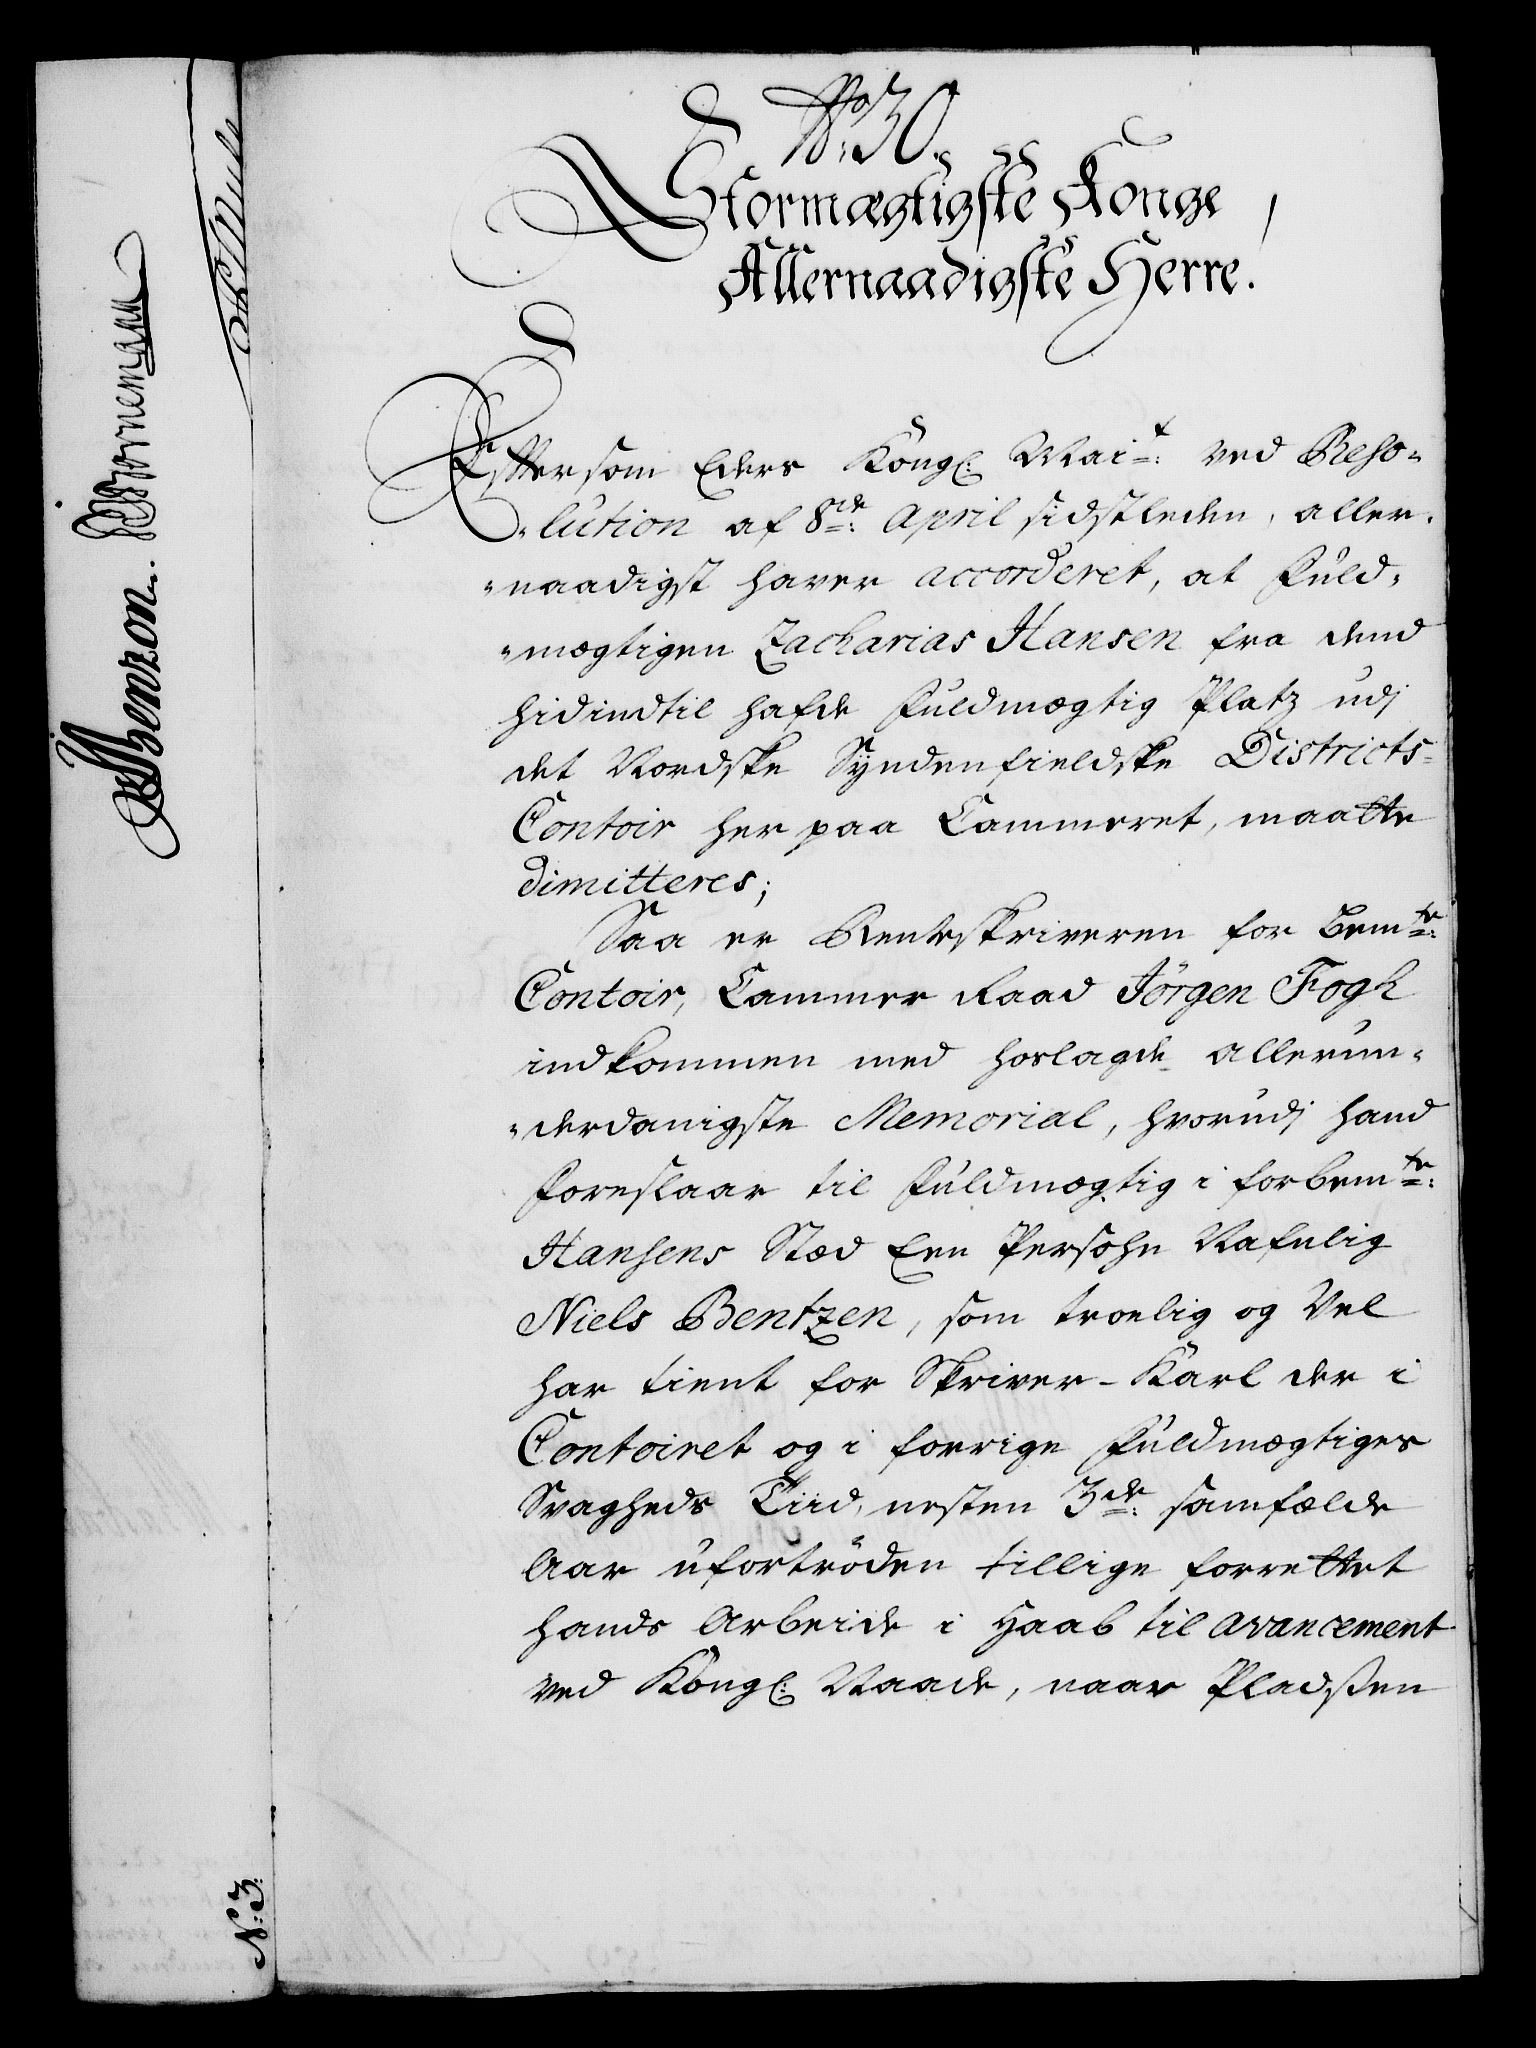 No: 30.
Stormægtigste Konge
Allernaadigste Herre.
Eftersom Eders Kongl: Mait: ved Reso-
-lution af 8de: April sidstleden, aller-
-naadigst haver accorderet, at Fuld-
-mægtigen Zacharias Hansen fra dend
hidindtil hafde Fuldmægtig Platz udj
det Nordske Syndenfieldske Districts-
Contoir her paa Cammeret, maatte
dimitteres;
Saa er Renteskriveren for bemte:
Contoir, Cammer Raad Jörgen Fogh
indkommen med hoslagde allerun-
-derdanigste Memorial, hvorudj hand
foreslaar til Fuldmægtig i forbemte:
Hansens Stæd Een Persohn Nafnlig
Niels Bentzen, som troelig og Vel
har tient for Skriver-Karl der i
Contoiret og i forrige Fuldmægtiges
Svagheds Tiid, nesten 3de: samfælde
Aar ufortröden tillige forrettet
hands Arbeide i Haab til avancement
ved Kongl: Naade, naar Pladsen
Benzon. Bornemann
N: 3.